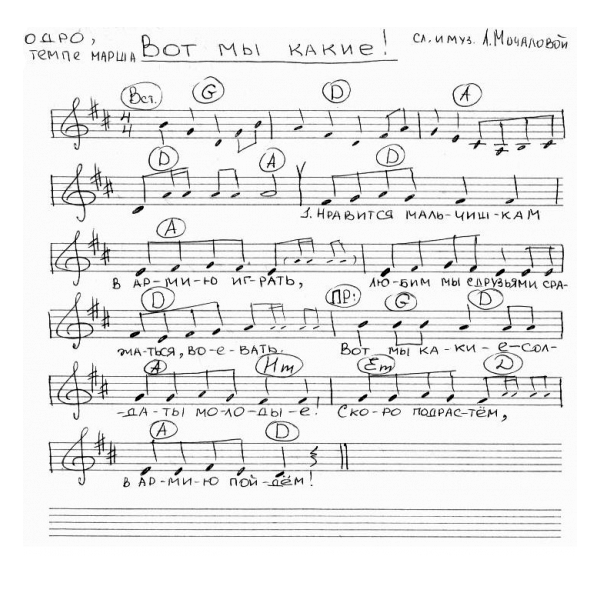 ОДРО, Вот мы какие! сл. и муз. Л. Мочаловой
темпе марша
Вст. G D A
4/4
D A D
1. Нравится маль-чиш-кам
A
в ар-ми-ю иг-рать, лю-бим мы с друзьями сра-
D ПР: G D
жа-ться, во-е-вать. Вот мы ка-ки-е-сол-
A Hm Em D
-да-ты мо-ло-ды-е! Ско-ро подрас-тём,
A D
в ар-ми-ю пой-дём!